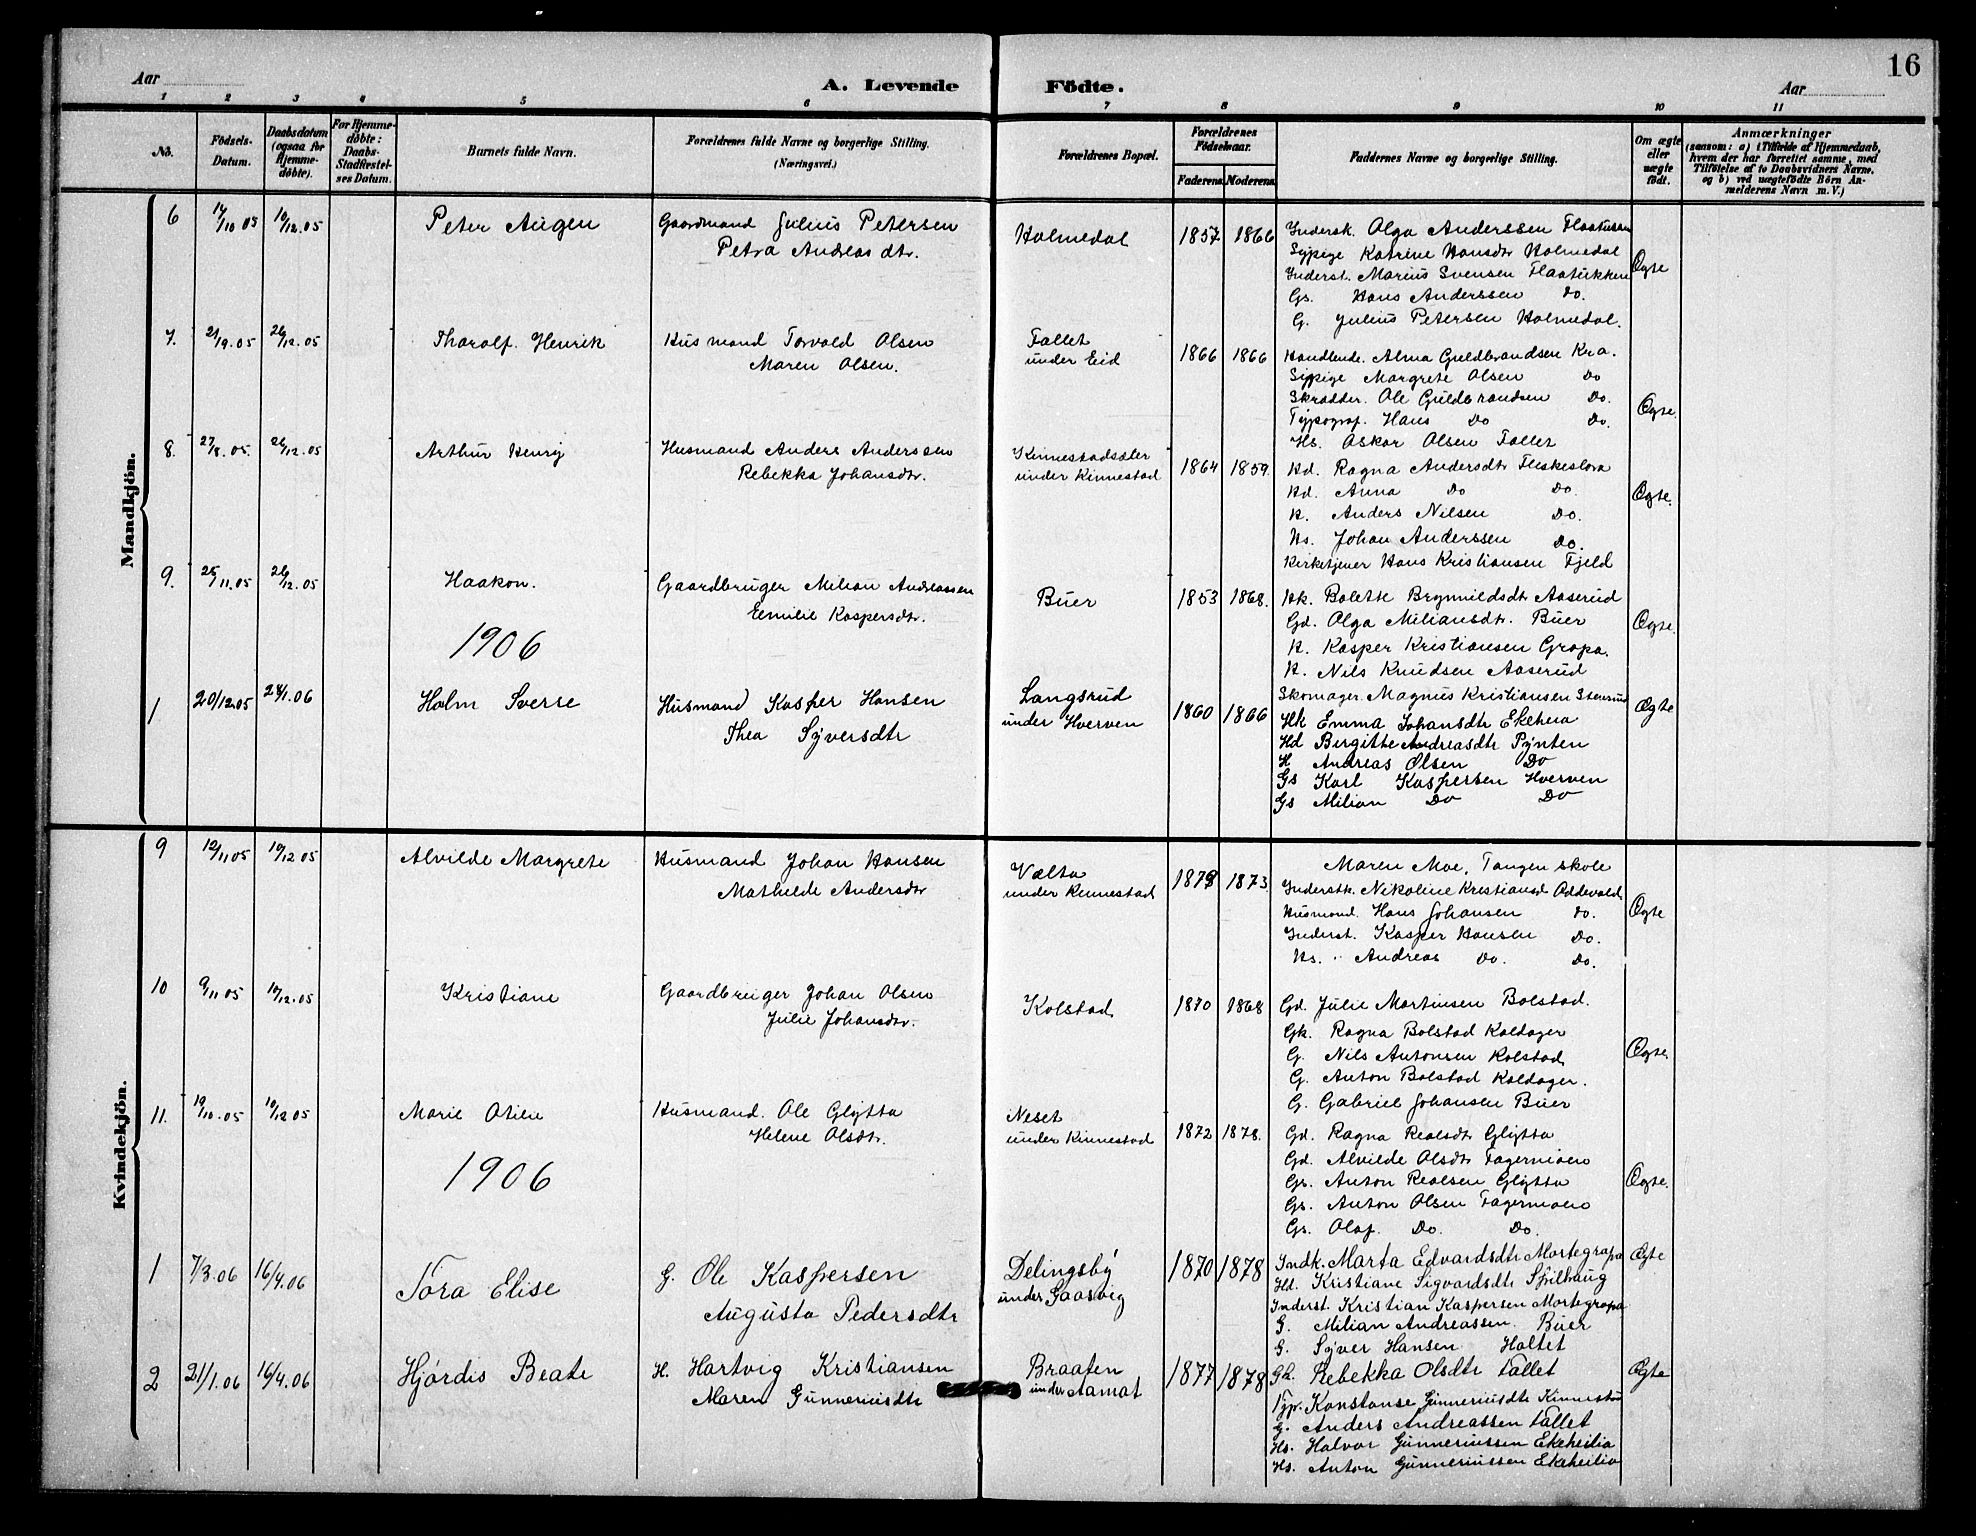 16
Aar
A. Levende Födte.
Aar
1 2 3 4 5 6 7 8 9 10 11
No. Födsels-Datum. Daabsdatum (ogsaa for Hjemme-döbte). For Hjemme-döbte: Daabs-Stadfæstel-ses Datum. Barnets fulde Navn. Forældrenes fulde Navne og borgerlige Stilling. (Næringsvei.) Forældrenes Bopæl. Forældrenes Födselsaar. Faderens. Moderens. Faddernes Navne og borgerlige Stilling. Om ægte eller uægte födt. Anmærkninger (saasom: a) i Tilfælde af Hjemmedaab, hvem der har forrettet samme, med Tilföielse af to Daabsvidners Navne. og b) ved uægtefödte Börn An-melderens Navn m. V.)
Mandkjön.
6 17/10 05 10/12.05 Peter Augen Gaardmand Julius Petersen Holmedal 1857 1866 Indersk. Olga Anderssen
Petra Andreasdtr. Sypige Katrine Hansdtr Holmedal
Inderst. Marius Svensen Flaatukken Ægte
Gs. Hans Anderssen Do.
G. Julius Petersen Holmedal.
7. 21/9.05 26/12.05 Tharalf. Henrik Husmand Torvald Olsen Fallet 1866 1866 Handlende. Alma Guldbrandsen Kra.
Maren Olsen. under Eid Sypige Margrete Olsen Do
Skrædder. Ole Guldbrandsen Do. Ægte.
Typograf. Hans Do Do.
Hs. Oskar Olsen Fallet
8. 27/8.05. 26/12.05 Arthur Henry Husmand Anders Anderssen Kinnestadsæter 1864 1859. Hd. Ragna Andersdtr Fleskeslora
Rebekka Johansdtr. under Kinnestad Hd. Anna Do Do.
H. Anders Nilsen Do. Ægte.
Hs. Johan Anderssen Do.
Kirketjener Hans Kristiansen Fjeld
9. 25/11.05 26/12.05 Haakon. Gaardbruger Milian Andreassen Buer 1853 1868. Hk. Bolette Brynildsdtr Aaserud
Eemilie Kaspersdtr. Gd. Olga Miliansdtr. Buer Ægte.
H. Kasper Kristiansen Gropa.
H. Nils Knudsen Aaserud
1906
1 20/12.05 28/1.06 Holm Sverse Husmand Kasper Hansen Langsrud 1860 1866 Skomager. Magnus Kristiansen Stensrud Ægte
Thea Syversdtr under Hverven Hk Emma Johansdtr Ekeheia
Hd Birgitte Andreasdtr Pynten
H Andreas Olsen Do
Gs Karl Kaspersen Hverven
Gs Milian Do Do
Kvindekjön.
9 12/11 05 10/12 05 Alvilde Margrete Husmand Johan Hansen Vælta 1879 1873. Maren Moe, Tangen skole
Mathilde Andersdtr under Kinnestad Inderstk. Nikoline Kristiansd Oddevald
Husmand. Hans Johansen Do. Ægte
Inderst. Kasper Hansen Do.
Hs. " Andreas Do. Do.
10 9/11 05 10/12.05 Kristiane Gaardbruger Johan Olsen Kolstad 1870 1868 Gd. Julie Martinsen Bolstad.
Julie Johansdtr. Gk. Ragna Bolstad Koldager
G. Nils Antonsen Kolstad Ægte
G. Anton Bolstad Koldager.
G. Gabriel Johansen Buer
11. 19/10.05 10/12 05 Marie Otilie Husmand. Ole Glytta Neset 1872 1878. Gd. Ragna Realsdtr Glytta
Helene Olsdtr. under Kinnestad Gd. Alvilde Olsdtr Fagermoen
Gs. Anton Realsen Glytta Ægte.
Gs. Anton Olsen Fagermoen
Gs. Olaf. Do. Do.
1906
1 7/3.06 16/4.06 Tora Elise G. Ole Kaspersen Delingsby 1870 1878 Indk. Marta Edvardsdtr Mortegropa Ægte
Augusta Pedersdtr under Gaasvig Hd. Kristiane Sigvardsdtr Spilhaug
Inderst. Kristian Kaspersen Mortegropa
G. Milian Andreassen. Buer
G. Syver Hansen Holtet
2 21/1.06 16/4.06 Hjørdis Beate H. Hartvig Kristiansen Braaten 1877 1878 Gk. Rebekka Olsdtr Fallet Ægte
Maren Gunneriusdtr under Aamot Typ. Konstanse Gunneriusdtr
G. Anders Andreassen Fallet
Hs. Halvor Gunneriussen Ekeheilia
Hs. Anton Gunneriussen Ekeheilia